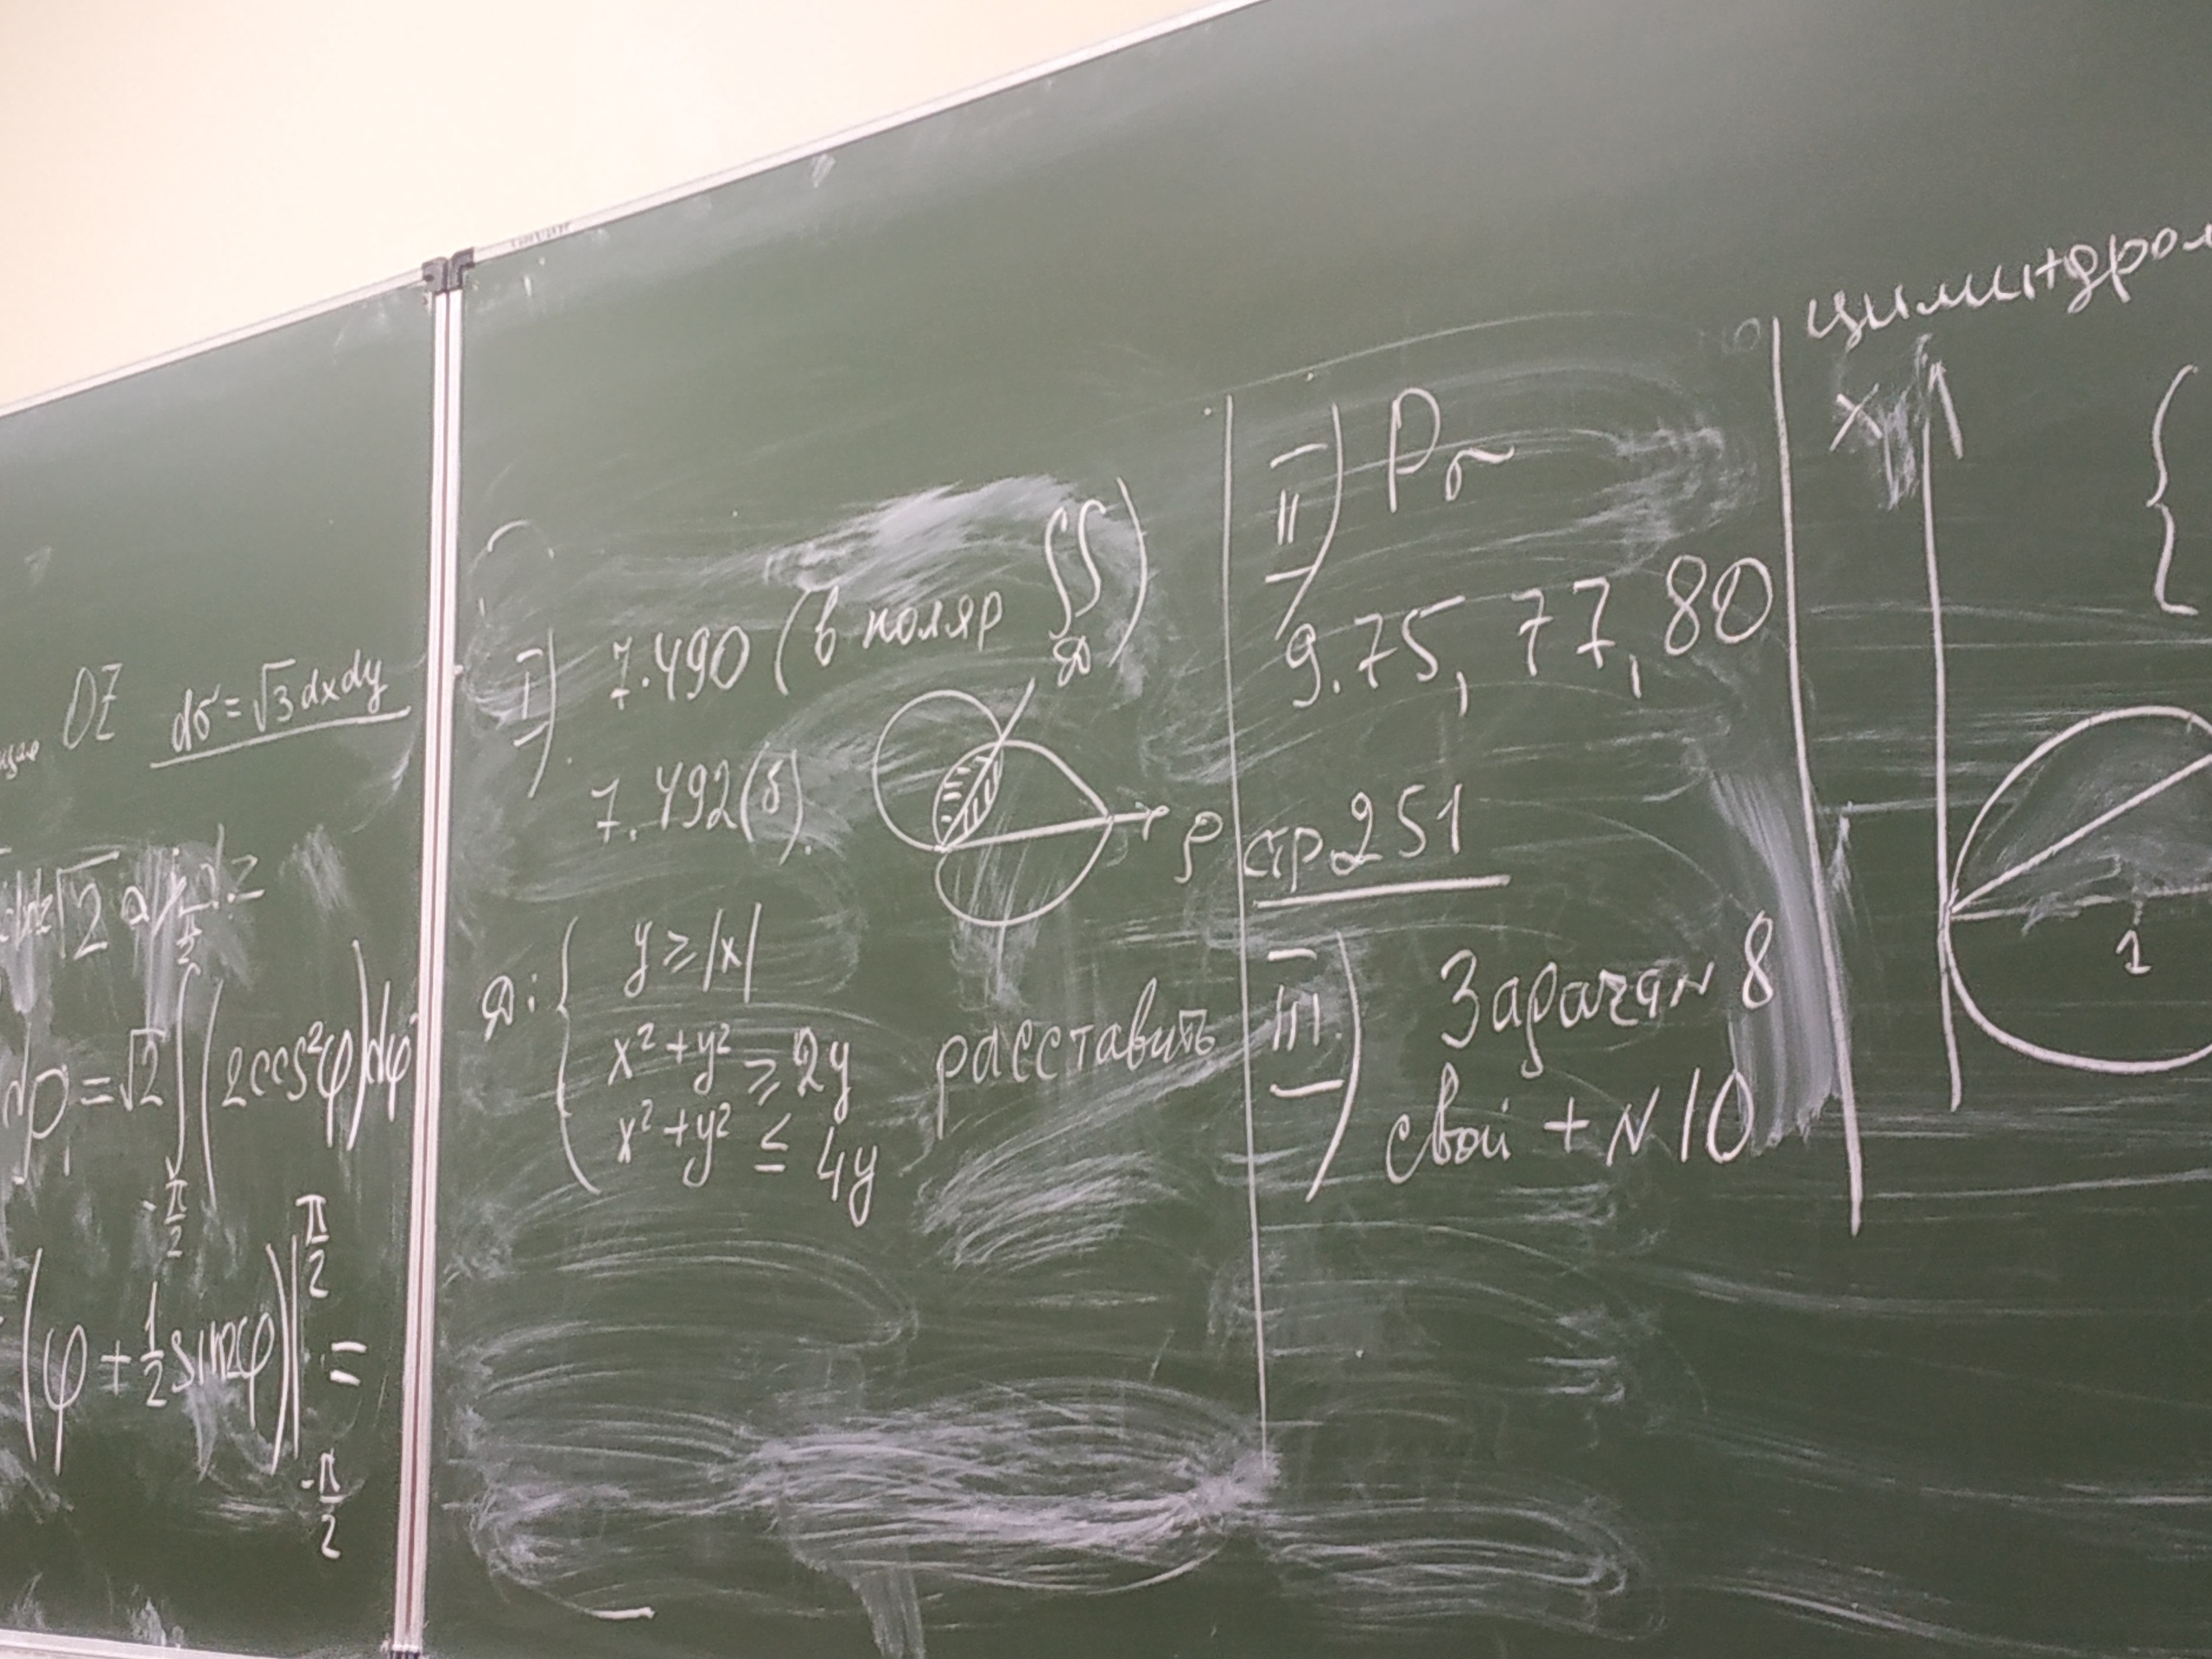 OZ dσ = √3 dxdy
dφ = √2 ∫ (2cos²φ)dφ
-π/2
(φ + 1/2 sin2φ) | =
π/2
-π/2
I) 7.490 (в поляр ∬)
D
7.492(б).
ρ
D: { y ≥ |x|
x² + y² ≥ 2y
x² + y² ≤ 4y
расставить
II) Pσ
9.75, 77, 80
стр 251
III) Задача N 8
свой + N 10
X
{
1